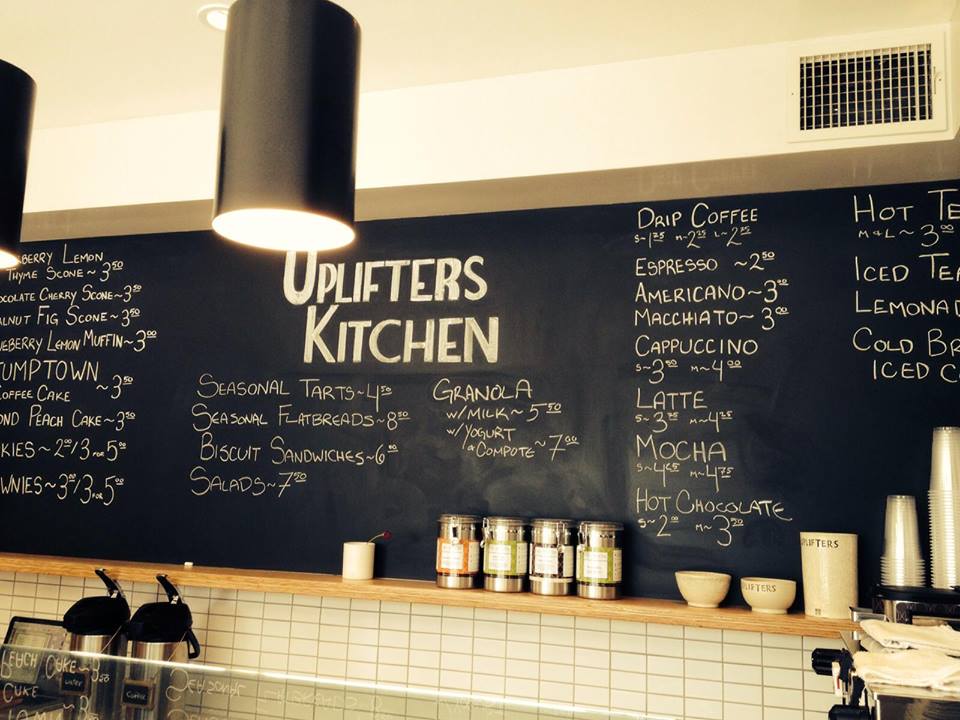 BERRY LEMON
THYME SCONE ~ 3⁵⁰
CHOCOLATE CHERRY SCONE ~ 3⁵⁰
WALNUT FIG SCONE ~ 3⁵⁰
BLUEBERRY LEMON MUFFIN ~ 3⁰⁰
STUMPTOWN
COFFEE CAKE ~ 3⁵⁰
OND PEACH CAKE ~ 3⁵⁰
KIES ~ 2⁰⁰/3 FOR 5⁰⁰
WNIES ~ 3⁰⁰/3 FOR 5⁰⁰
UPLIFTERS
KITCHEN
SEASONAL TARTS ~ 4⁵⁰
SEASONAL FLATBREADS ~ 8⁵⁰
BISCUIT SANDWICHES ~ 6⁵⁰
SALADS ~ 7⁵⁰
GRANOLA
W/MILK ~ 5⁵⁰
W/YOGURT
& COMPOTE ~ 7⁰⁰
DRIP COFFEE
S ~ 1⁷⁵ M ~ 2²⁵ L ~ 2⁷⁵
ESPRESSO ~ 2⁵⁰
AMERICANO ~ 3⁰⁰
MACCHIATO ~ 3⁰⁰
CAPPUCCINO
S ~ 3⁵⁰ M ~ 4⁰⁰
LATTE
S ~ 3⁷⁵ M ~ 4²⁵
MOCHA
S ~ 4²⁵ M ~ 4⁷⁵
HOT CHOCOLATE
S ~ 2⁰⁰ M ~ 3⁵⁰
HOT TE
M & L ~ 3⁰⁰
ICED TEA
LEMONAD
COLD BR
ICED C
UPLIFTERS
UPLIFTERS
PEACH CAKE ~ 3⁵⁰
WATER
COFFEE
SEASONAL